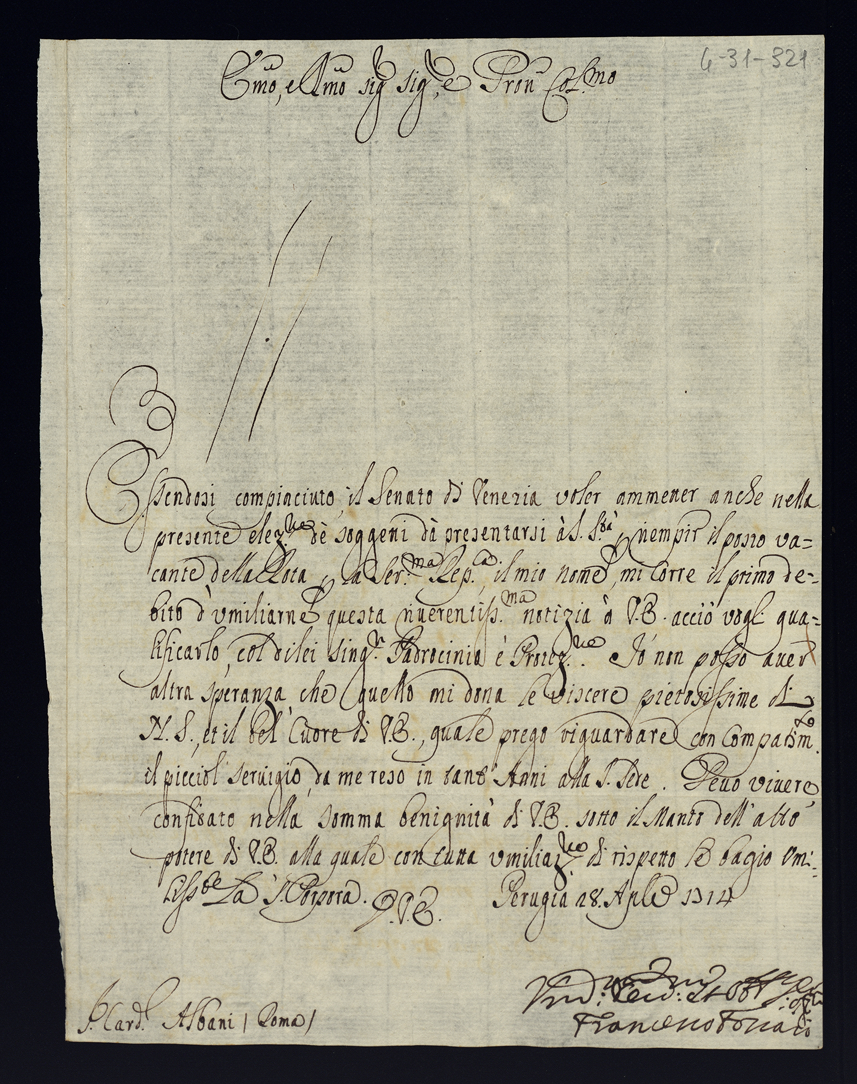 4-31-321
Emo, e Rmo Sig.r Sig.r, e Pron Col.mo
Essendosi compiaciuto il Senato di Venezia voler ammetter anche nella
presente elez.ne de soggetti dà presentarsi à S. S.tà p riempir il posto va=
cante della Rota p la Ser.ma Rep.ca il mio nome, mi corre il primo de=
bito d'umiliarne questa riverentiss.ma notizia à V.E. acciò vogl. qua=
lificarlo col di lei sing.r Padrocinio è Protez.ne. Io non posso aver
altra speranza che quello mi dona le viscere pietosissime di
N. S., et il bel Cuore di V.E., quale prego riguardare con compatim.to
il picciol servigio da me reso in tant' Anni alla S. Sede. Devo vivere
confidato nella somma benignità di V.E. sotto il Manto dell'alto
potere di V.E. alla quale con tutta umiliaz.ne di rispetto le bagio Umi=
liss.te La S. Porpora. D.V.E. Perugia 28. Aple 1714
S. Card. Albani / Roma /
Francesco Foscari